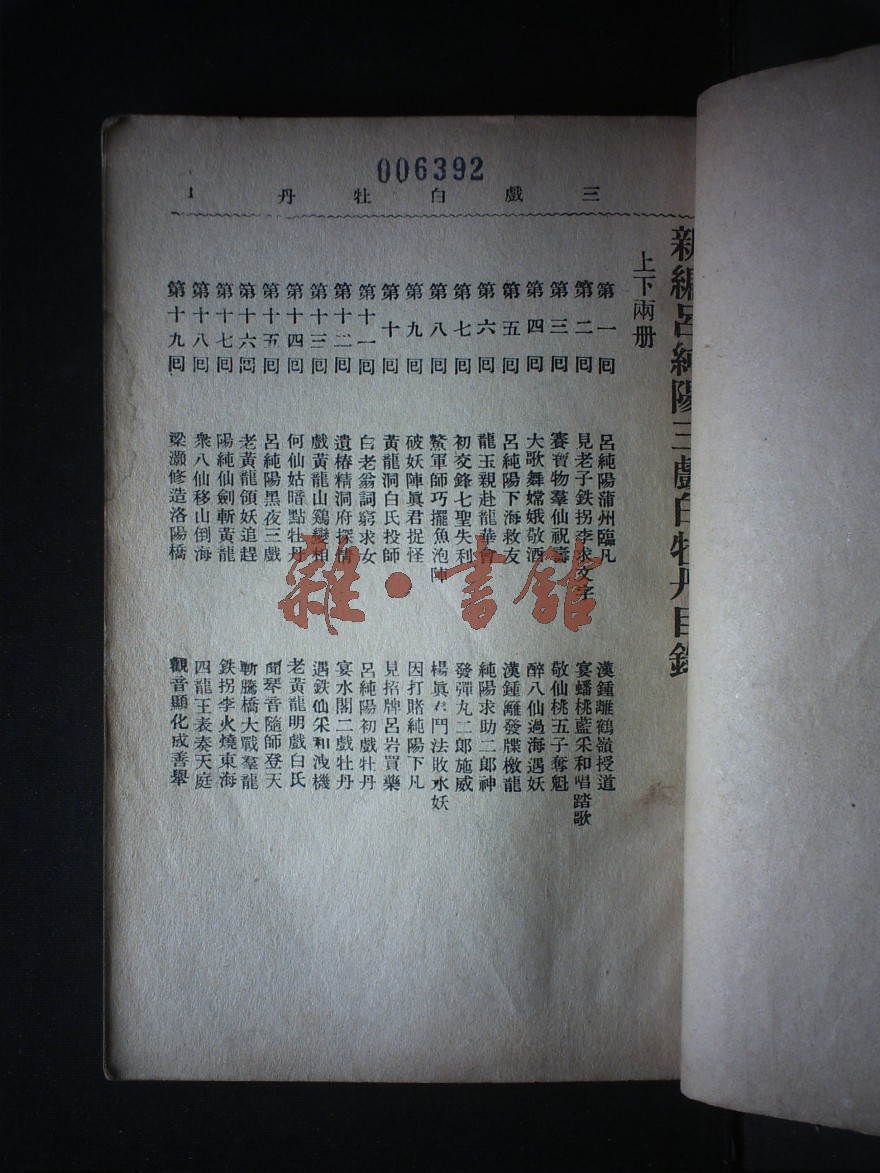 006392
三戲白牡丹
1
新編呂純陽三戲白牡丹目錄
上下兩册
第一回 呂純陽蒲州臨凡 漢鍾離鶴嶺授道
第二回 見老子鉄拐李求文字 宴蟠桃藍采和唱踏歌
第三回 賽寶物羣仙祝壽 敬仙桃五子奪魁
第四回 大歌舞嫦娥敬酒 醉八仙過海遇妖
第五回 呂純陽下海救友 漢鍾離發牒檄龍
第六回 龍玉親赴龍華會 純陽求助二郎神
第七回 初交鋒七聖失利 發彈丸二郎施威
第八回 鰲軍師巧擺魚泡陣 楊眞君鬥法敗水妖
第九回 破妖陣眞君捉怪 因打賭純陽下凡
第十回 黃龍洞白氏投師 見招牌呂岩買藥
第十一回 白老翁詞窮求女 呂純陽初戲牡丹
第十二回 遺椿精洞府探情 宴水閣二戲牡丹
第十三回 戲黃龍山鷄變相 遇鉄仙采和洩機
第十四回 何仙姑暗點牡丹 老黃龍明戲白氏
第十五回 呂純陽黑夜三戲 聞琴音隨師登天
第十六回 老黃龍領妖追趕 斬騰橋大戰羣龍
第十七回 陽純仙劍斬黃龍 鉄拐李火燒東海
第十八回 衆八仙移山倒海 四龍王表奏天庭
第十九回 梁灝修造洛陽橋 觀音顯化成善舉
雜·書館